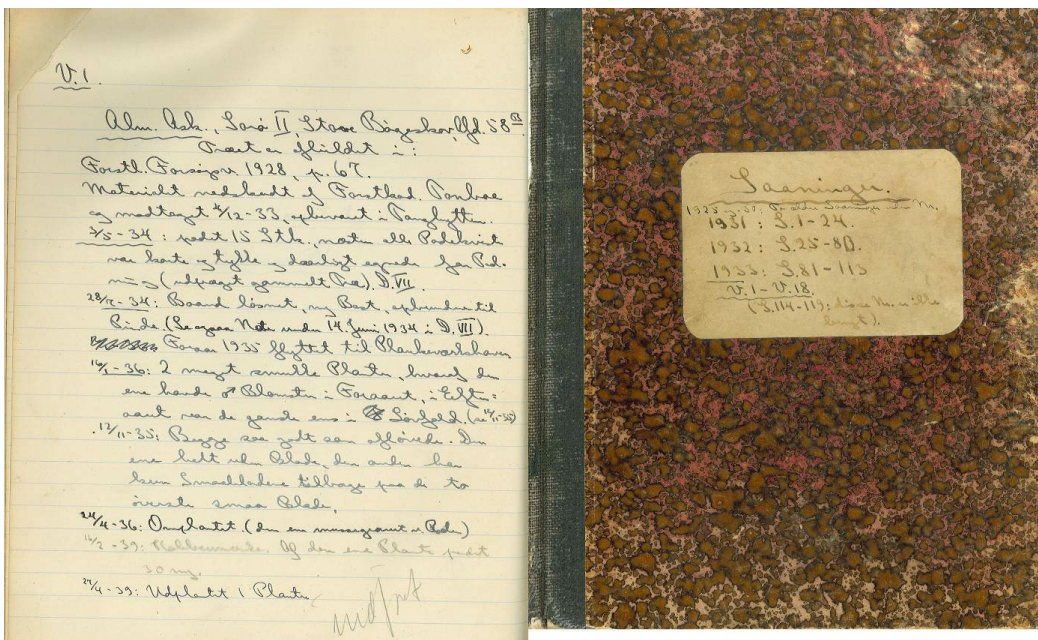 V.1.
Alm. Ask., Sorø II, Store Bøgeskov, Afd. 58 B
Træet er afbildet i:
Forstl. Forsøgsv. 1928, p. 67.
Materialet nedskaaret af Forstkand.
og modtaget 4/12-33, opbevaret i
3/5-34: podet 15 Stk., næsten alle Podekviste
var korte og tykke og daarligt egnede for Pod-
ning (udpræget gammelt Træ). D. VII.
28/ -34: Baand løsnet, ny Bast, opbunden til
Pinde. (Se ogsaa Note under 14 Juni 1934 i D. VII).
Foraar 1935 flyttet til Planteværkshaven
14/1-36: 2 meget smukke Planter, hvoraf den
ene havde ♂ Blomster i Foraaret, i Efter-
aaret var de ganske ens i Løvfald, (se 12/11-35)
12/11-35: Begge saa godt som afløvede. Den
ene helt uden Blade, den anden har
kun Smaabladene tilbage paa de to
øverste smaa Blade.
24/4-36: Omplantet (den ene i Roden)
16/2-39: Af den ene Plante podet
30 ny.
27/4-39: Udplantet 1 Plante
Saaninger.
1931: S.1-24.
1932: S.25-80.
1933: S.81-113
V.1-V.18.
(S.114-119; disse No. ikke
brugt).